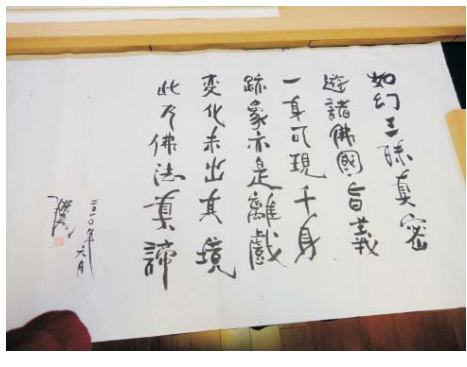 如幻三昧真密
遊諸佛國旨義
一身可現千身
跡象亦是離戲
变化未出真境
此乃佛法真諦
二〇一〇年六月